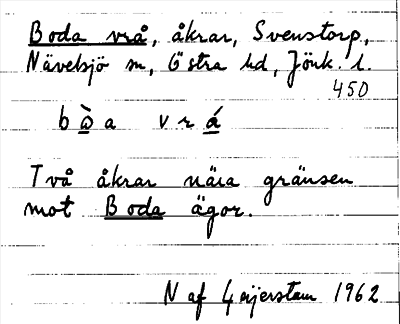 Boda vrå, åkrar, Svenstorp,
Nävelsjö sn, Östra hd, Jönk. l.
450
b ò a v r á
Två åkrar nära gränsen
mot Boda ägor.
N af Geijerstam 1962